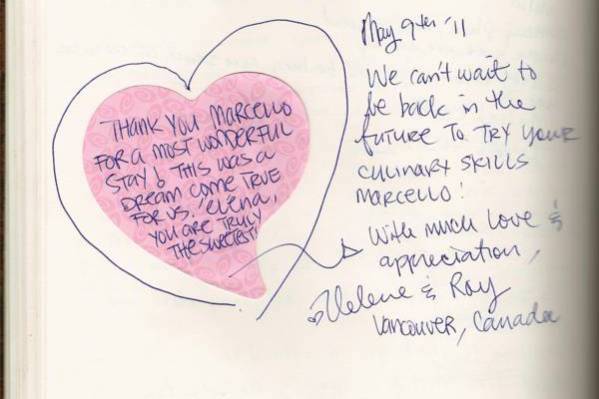 THANK YOU MARCELLO
FOR A MOST WONDERFUL
STAY! THIS WAS A
DREAM COME TRUE
FOR US. ELENA,
YOU ARE TRULY
THE SWEETEST!
May 9th '11
We can't wait to
be back in the
future to TRY YOUR
CULINARY SKILLS
MARCELLO!
With much love &
appreciation,
Helene & Ray
VANCOUVER, Canada